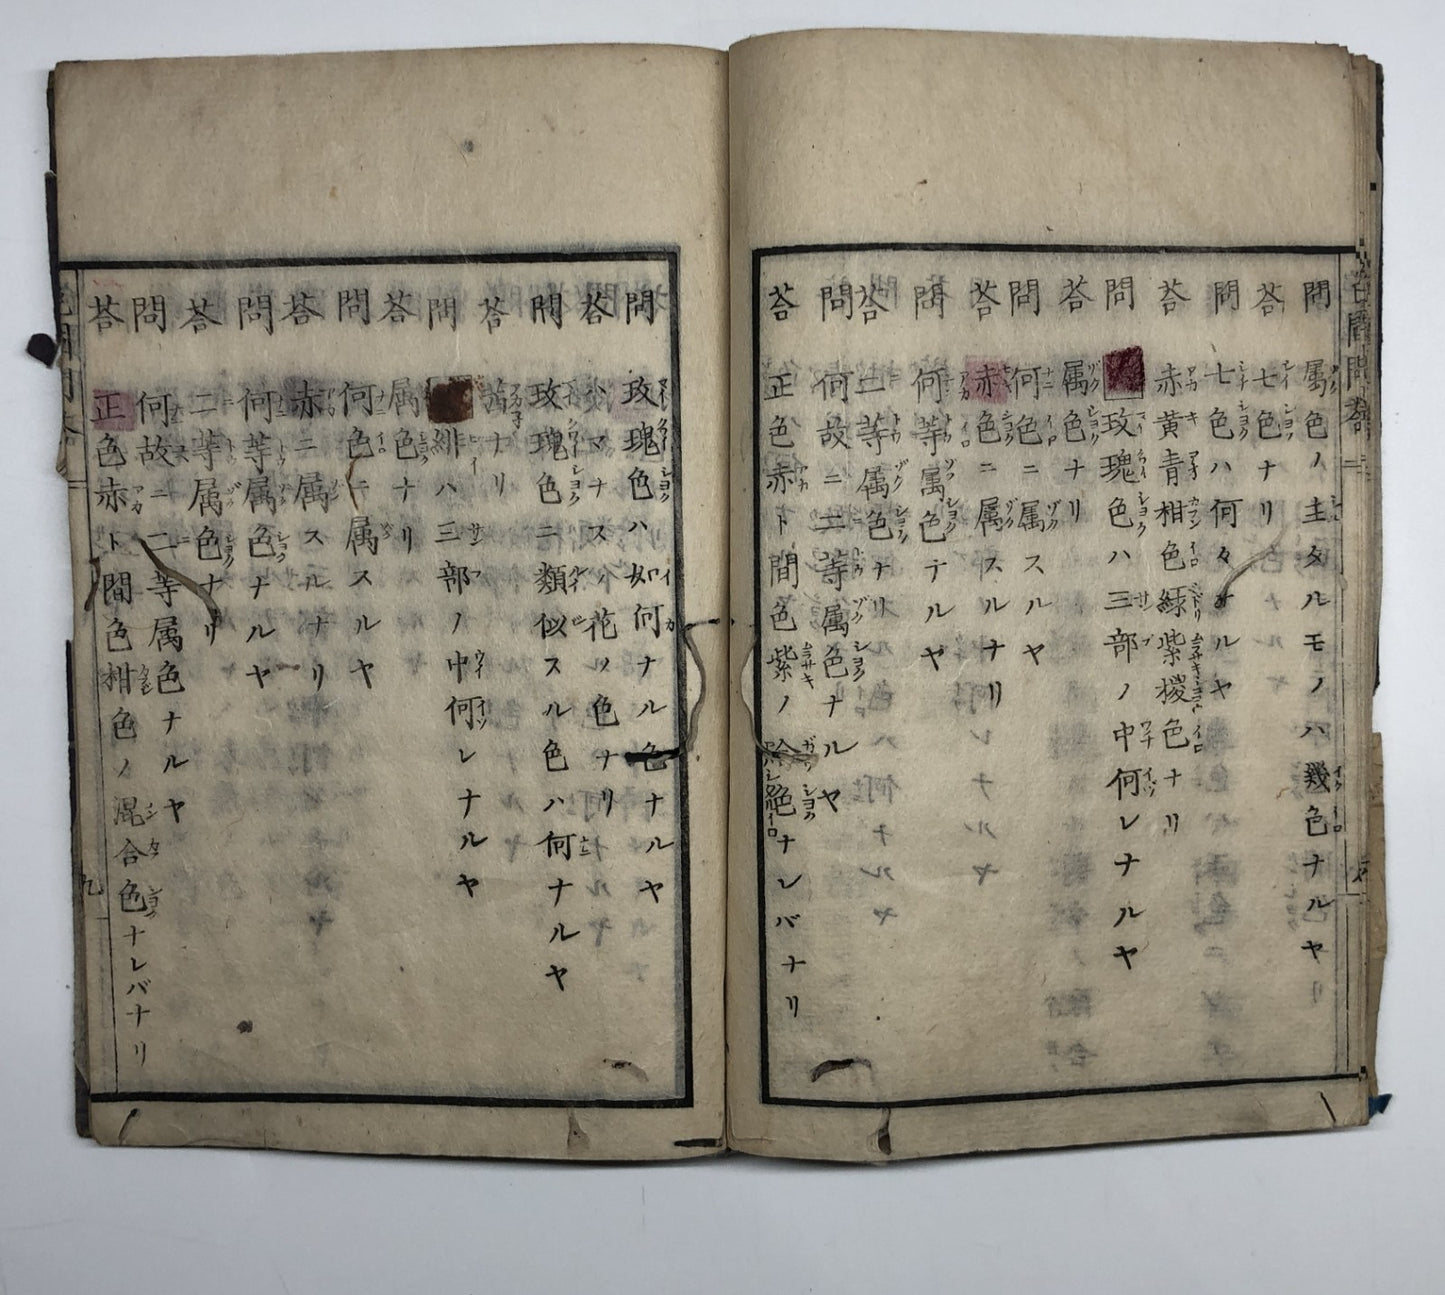 問 属色ノ主タルモノハ幾色ナルヤ
荅 七色ナリ
問 七色ハ何々ナルヤ
荅 赤黄青柑色緑紫椶色ナリ
問 玫瑰色ハ三部ノ中何レナルヤ
荅 属色ナリ
問 何色ニ属スルヤ
荅 赤色ニ属スルナリ
問 何等属色ナルヤ
荅 二等属色ナリ
問 何故ニ二等属色ナルヤ
荅 正色赤ト間色紫ノ 色ナレバナリ
問 玫瑰色ハ如何ナル色ナルヤ
荅 ハマナスノ花ノ色ナリ
問 玫瑰色ニ類似スル色ハ何ナルヤ
荅 ナリ
問 緋ハ三部ノ中何レナルヤ
荅 属色ナリ
問 何色ニ属スルヤ
荅 赤ニ属スルナリ
問 何等属色ナルヤ
荅 二等属色ナリ
問 何故ニ二等属色ナルヤ
荅 正色赤ト間色柑色ノ混合色ナレバナリ
九